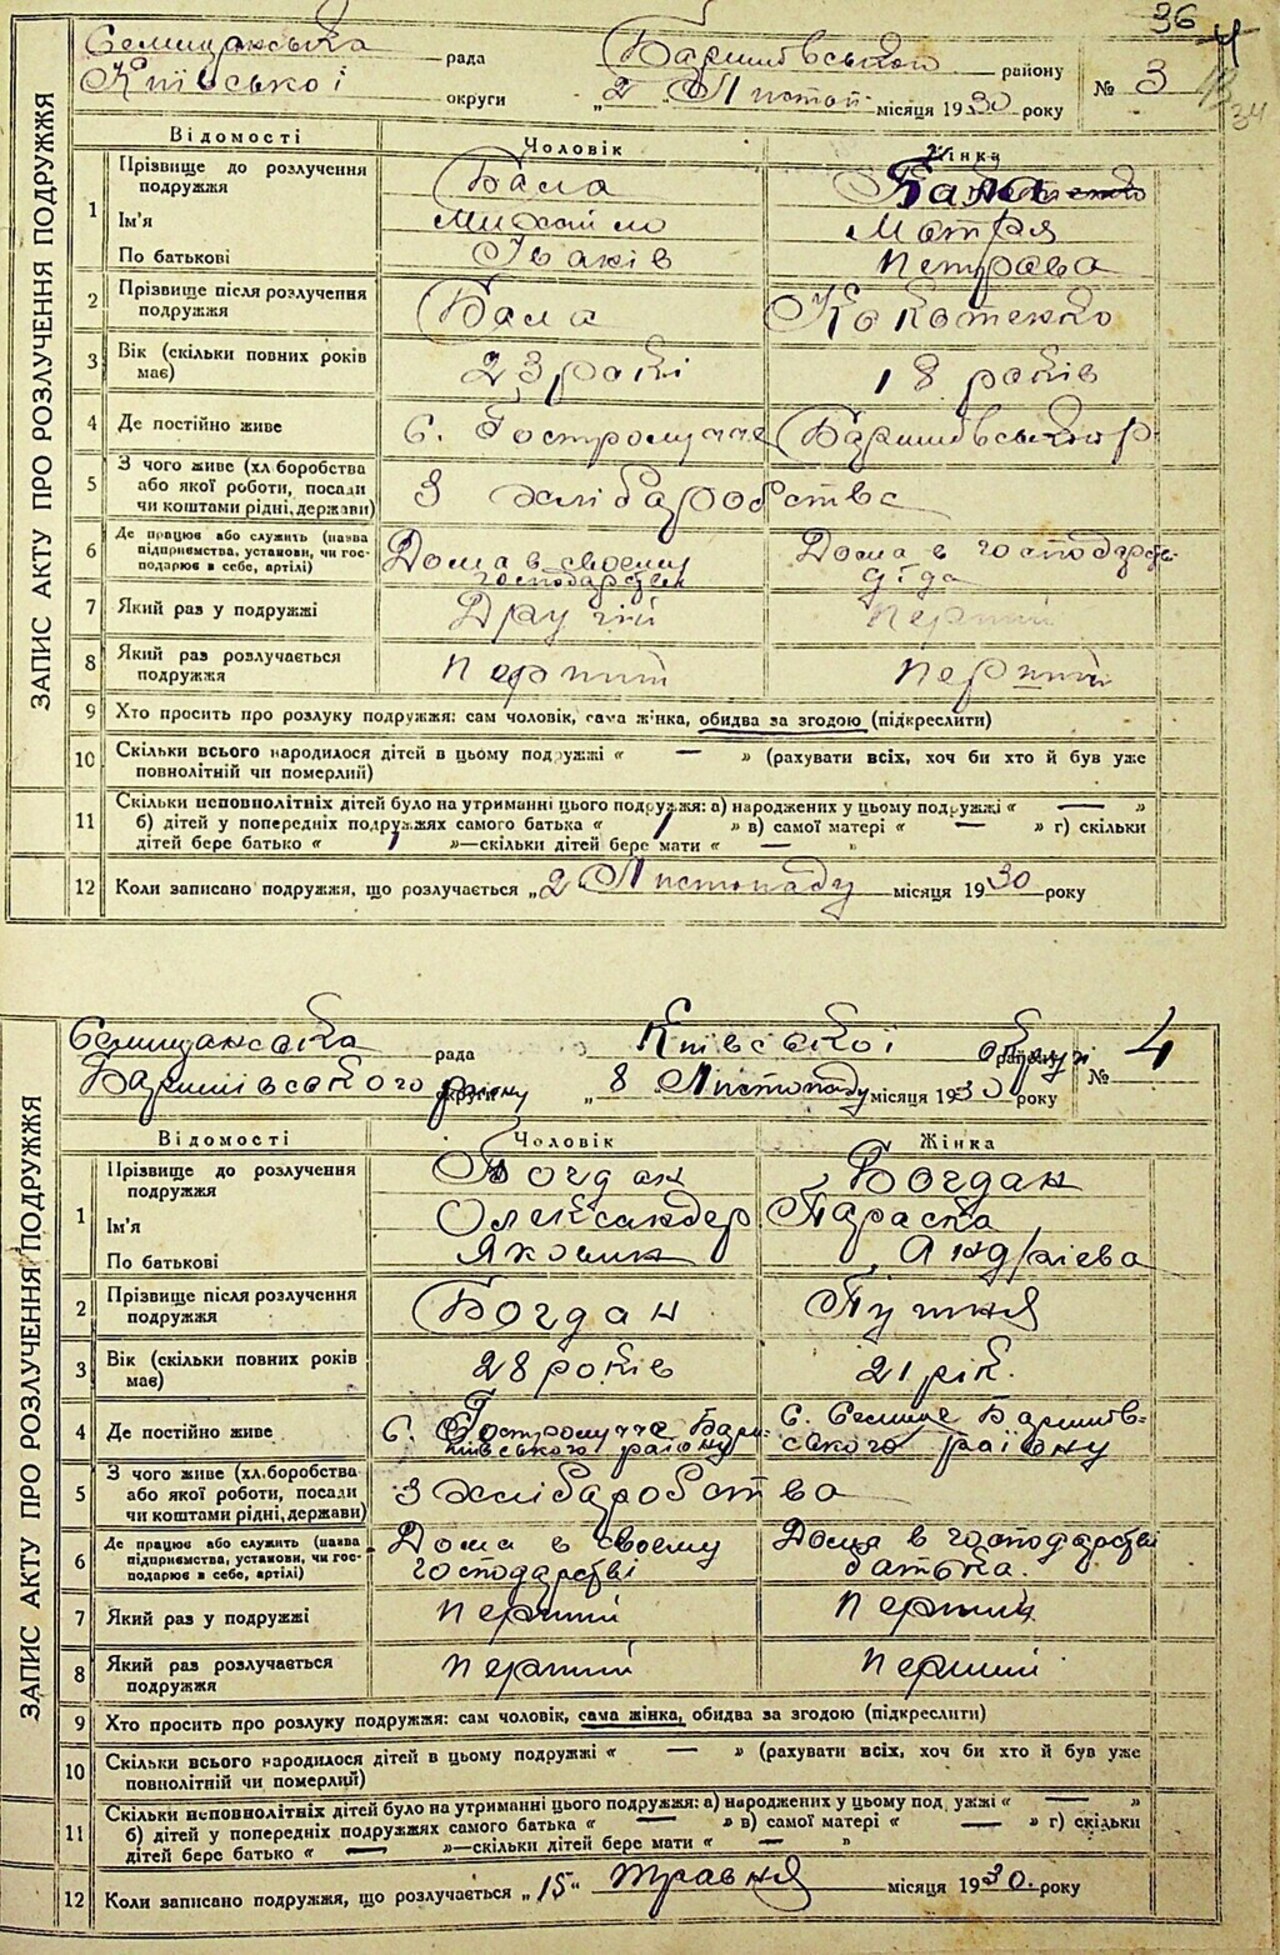 36
Селищанська рада Баришівського району № 3
34
Київської округи „2 Листоп. місяця 1930 року
ЗАПИС АКТУ ПРО РОЗЛУЧЕННЯ ПОДРУЖЖЯ
Відомості Чоловік Жінка
1 Прізвище до розлучення подружжя Бала Бала
Ім'я Михайло Мотря
По батькові Іванів Петрова
2 Прізвище після розлучення подружжя Бала Кокотенко
3 Вік (скільки повних років має) 23 рокі 18 років
4 Де постійно живе С. Гостролуччє Баришівського р.
5 З чого живе (хл боробства або якої роботи, посади чи коштами рідні, держави) З хлібаробства
6 Де працює або служить (назва підприємства, установи, чи господарює в себе, артілі) Дома в своему господарстві Дома в господарстві діда
7 Який раз у подружжі Другий Перший
8 Який раз розлучається подружжя Перший Перший
9 Хто просить про розлуку подружжя: сам чоловік, сама жінка, обидва за згодою (підкреслити)
10 Скільки всього народилося дітей в цьому подружжі « — » (рахувати всіх, хоч би хто й був уже
повнолітній чи померлий)
11 Скільки неповнолітніх дітей було на утриманні цього подружжя: а) народжених у цьому подружжі « — »
б) дітей у попередніх подружжях самого батька « 1 » в) самої матері « — » г) скільки
дітей бере батько « 1 »—скільки дітей бере мати « — »
12 Коли записано подружжя, що розлучається „2 Листопаду місяця 1930 року
Селищанська рада Київської округи району № 4
Баришівського району округи „8 Листопаду місяця 1930 року
ЗАПИС АКТУ ПРО РОЗЛУЧЕННЯ ПОДРУЖЖЯ
Відомості Чоловік Жінка
1 Прізвище до розлучення подружжя Богдан Богдан
Ім'я Олександер Параска
По батькові Якович Андрієва
2 Прізвище після розлучення подружжя Богдан
3 Вік (скільки повних років має) 28 років 21 рік.
4 Де постійно живе С. Гостролуччє Баришівського району С. Селище Баришівського району
5 З чого живе (хл.боробства або якої роботи, посади чи коштами рідні, держави) З хлібаробства
6 Де працює або служить (назва підприємства, установи, чи господарює в себе, артілі) Дома в своему господарстві Дома в господарстві батька.
7 Який раз у подружжі Перший Перший
8 Який раз розлучається подружжя Перший Перший
9 Хто просить про розлуку подружжя: сам чоловік, сама жінка, обидва за згодою (підкреслити)
10 Скільки всього народилося дітей в цьому подружжі « — » (рахувати всіх, хоч би хто й був уже
повнолітній чи померлий)
11 Скільки неповнолітніх дітей було на утриманні цього подружжя: а) народжених у цьому под ужжі « — »
б) дітей у попередніх подружжях самого батька « — » в) самої матері « — » г) скільки
дітей бере батько « — »—скільки дітей бере мати « — »
12 Коли записано подружжя, що розлучається „15“ травня місяця 1930. року